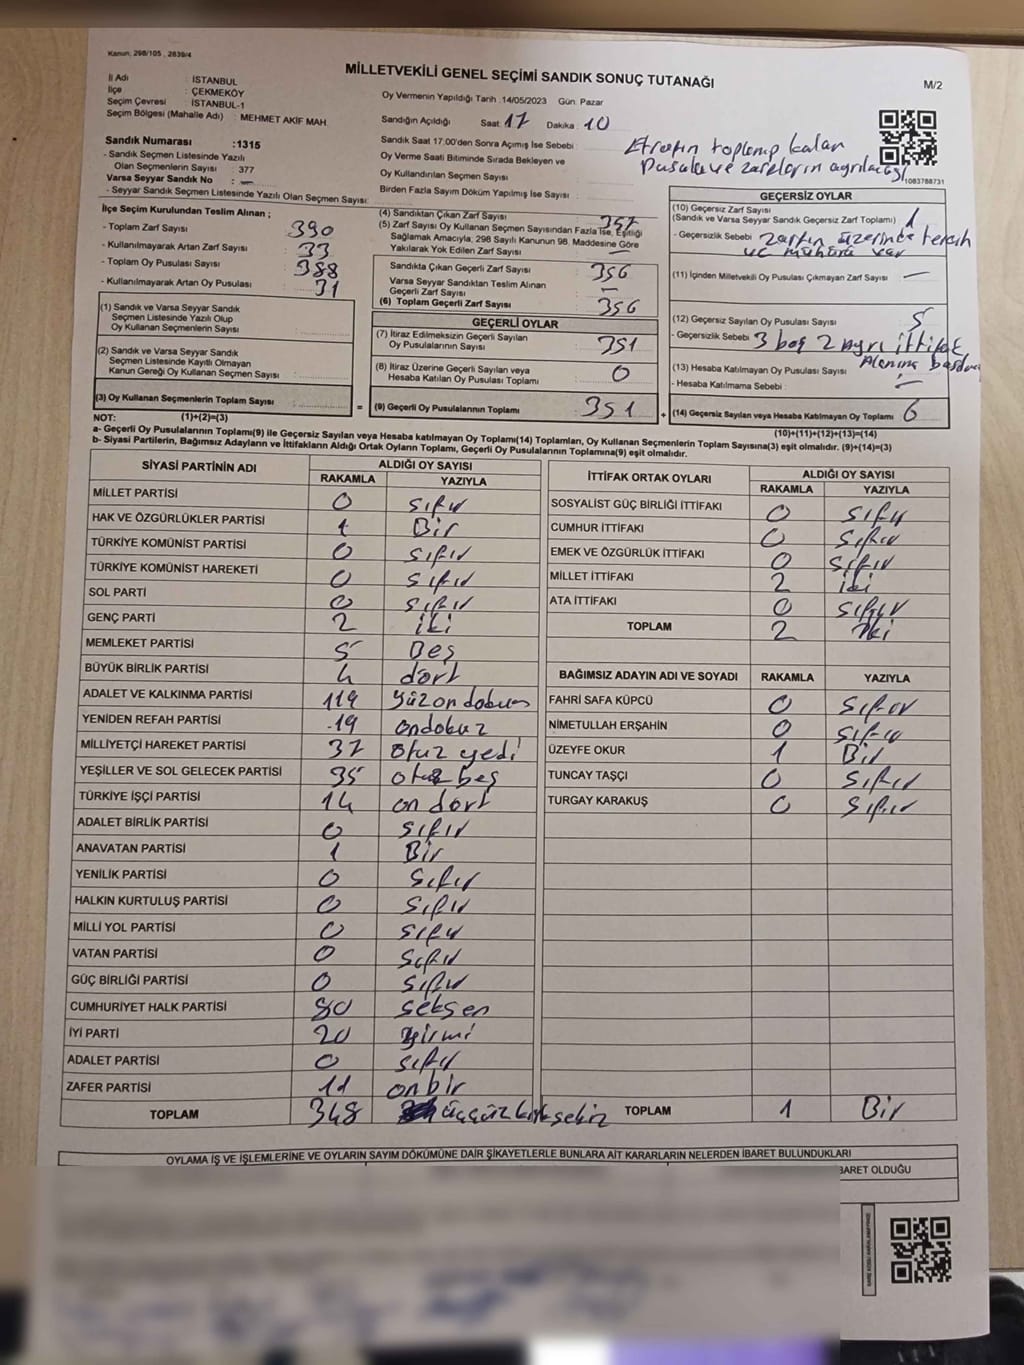 Kanun, 298/105 , 2839/4
MİLLETVEKİLİ GENEL SEÇİMİ SANDIK SONUÇ TUTANAĞI
M/2
İl Adı : İSTANBUL
İlçe : ÇEKMEKÖY
Seçim Çevresi : İSTANBUL-1
Seçim Bölgesi (Mahalle Adı) : MEHMET AKİF MAH.
Oy Vermenin Yapıldığı Tarih :14/05/2023 Gün: Pazar
Sandığın Açıldığı Saat: 17 Dakika: 10
Sandık Numarası :1315
- Sandık Seçmen Listesinde Yazılı
Olan Seçmenlerin Sayısı : 377
Varsa Seyyar Sandık No : —
- Seyyar Sandık Seçmen Listesinde Yazılı Olan Seçmen Sayısı:
Sandık Saat 17:00'den Sonra Açılmış İse Sebebi : Etrafın toplanıp kalan
Pusula ve zarfların ayrılacağı
Oy Verme Saati Bitiminde Sırada Bekleyen ve
Oy Kullandırılan Seçmen Sayısı :
Birden Fazla Sayım Döküm Yapılmış İse Sayısı :
1083788731
İlçe Seçim Kurulundan Teslim Alınan ;
- Toplam Zarf Sayısı : 390
- Kullanılmayarak Artan Zarf Sayısı : 33
- Toplam Oy Pusulası Sayısı : 388
- Kullanılmayarak Artan Oy Pusulası : 31
(1) Sandık ve Varsa Seyyar Sandık
Seçmen Listesinde Yazılı Olup
Oy Kullanan Seçmenlerin Sayısı :
(2) Sandık ve Varsa Seyyar Sandık
Seçmen Listesinde Kayıtlı Olmayan
Kanun Gereği Oy Kullanan Seçmen Sayısı :
(3) Oy Kullanan Seçmenlerin Toplam Sayısı :
(4) Sandıktan Çıkan Zarf Sayısı : 357
(5) Zarf Sayısı Oy Kullanan Seçmen Sayısından Fazla İse, Eşitliği
Sağlamak Amacıyla; 298 Sayılı Kanunun 98. Maddesine Göre
Yakılarak Yok Edilen Zarf Sayısı : —
Sandıkta Çıkan Geçerli Zarf Sayısı : 356
Varsa Seyyar Sandıktan Teslim Alınan
Geçerli Zarf Sayısı : —
(6) Toplam Geçerli Zarf Sayısı : 356
GEÇERLİ OYLAR
(7) İtiraz Edilmeksizin Geçerli Sayılan
Oy Pusulalarının Sayısı : 351
(8) İtiraz Üzerine Geçerli Sayılan veya
Hesaba Katılan Oy Pusulası Toplamı : 0
= (9) Geçerli Oy Pusulalarının Toplamı : 351 +
GEÇERSİZ OYLAR
(10) Geçersiz Zarf Sayısı
(Sandık ve Varsa Seyyar Sandık Geçersiz Zarf Toplamı) : 1
- Geçersizlik Sebebi : Zarfın üzerinde tercih
ve mühürü var
(11) İçinden Milletvekili Oy Pusulası Çıkmayan Zarf Sayısı : —
(12) Geçersiz Sayılan Oy Pusulası Sayısı : 5
- Geçersizlik Sebebi : 3 boş 2 ayrı ittifak
Alanına
(13) Hesaba Katılmayan Oy Pusulası Sayısı : —
- Hesaba Katılmama Sebebi :
(14) Geçersiz Sayılan veya Hesaba Katılmayan Oy Toplamı : 6
NOT: (1)+(2)=(3)
(10)+(11)+(12)+(13)=(14)
a- Geçerli Oy Pusulalarının Toplamı(9) ile Geçersiz Sayılan veya Hesaba katılmayan Oy Toplamı(14) Toplamları, Oy Kullanan Seçmenlerin Toplam Sayısına(3) eşit olmalıdır. (9)+(14)=(3)
b- Siyasi Partilerin, Bağımsız Adayların ve İttifakların Aldığı Ortak Oyların Toplamı, Geçerli Oy Pusulalarının Toplamına(9) eşit olmalıdır.
SİYASİ PARTİNİN ADI ALDIĞI OY SAYISI
RAKAMLA YAZIYLA
MİLLET PARTİSİ 0 sıfır
HAK VE ÖZGÜRLÜKLER PARTİSİ 1 Bir
TÜRKİYE KOMÜNİST PARTİSİ 0 sıfır
TÜRKİYE KOMÜNİST HAREKETİ 0 sıfır
SOL PARTİ 0 sıfır
GENÇ PARTİ 2 iki
MEMLEKET PARTİSİ 5 Beş
BÜYÜK BİRLİK PARTİSİ 4 dört
ADALET VE KALKINMA PARTİSİ 119 yüzondokuz
YENİDEN REFAH PARTİSİ 19 ondokuz
MİLLİYETÇİ HAREKET PARTİSİ 37 otuz yedi
YEŞİLLER VE SOL GELECEK PARTİSİ 35 otuz beş
TÜRKİYE İŞÇİ PARTİSİ 14 on dört
ADALET BİRLİK PARTİSİ 0 sıfır
ANAVATAN PARTİSİ 1 Bir
YENİLİK PARTİSİ 0 sıfır
HALKIN KURTULUŞ PARTİSİ 0 sıfır
MİLLİ YOL PARTİSİ 0 sıfır
VATAN PARTİSİ 0 sıfır
GÜÇ BİRLİĞİ PARTİSİ 0 sıfır
CUMHURİYET HALK PARTİSİ 80 seksen
İYİ PARTİ 20 yirmi
ADALET PARTİSİ 0 sıfır
ZAFER PARTİSİ 11 onbir
TOPLAM 348 üçyüzkırksekiz
İTTİFAK ORTAK OYLARI ALDIĞI OY SAYISI
RAKAMLA YAZIYLA
SOSYALİST GÜÇ BİRLİĞİ İTTİFAKI 0 sıfır
CUMHUR İTTİFAKI 0 sıfır
EMEK VE ÖZGÜRLÜK İTTİFAKI 0 sıfır
MİLLET İTTİFAKI 2 iki
ATA İTTİFAKI 0 sıfır
TOPLAM 2 iki
BAĞIMSIZ ADAYIN ADI VE SOYADI RAKAMLA YAZIYLA
FAHRİ SAFA KÜPCÜ 0 sıfır
NİMETULLAH ERŞAHİN 0 sıfır
ÜZEYFE OKUR 1 Bir
TUNCAY TAŞÇI 0 sıfır
TURGAY KARAKUŞ 0 sıfır
TOPLAM 1 Bir
OYLAMA İŞ VE İŞLEMLERİNE VE OYLARIN SAYIM DÖKÜMÜNE DAİR ŞİKAYETLERLE BUNLARA AİT KARARLARIN NELERDEN İBARET BULUNDUKLARI
BARET OLDUĞU